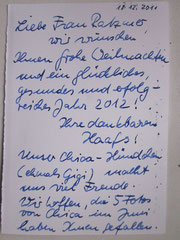 Liebe Frau
wir wünschen
Ihnen frohe Weihnachten
und ein glückliches,
gesundes und erfolg-
reiches Jahr 2012!
Ihre dankbaren
Haafs!
Unser Chica-Hündchen
(ehemals Gigi) macht
uns viel Freude.
Wir hoffen, die 5 Fotos
von Chica im Juni
haben Ihnen gefallen.